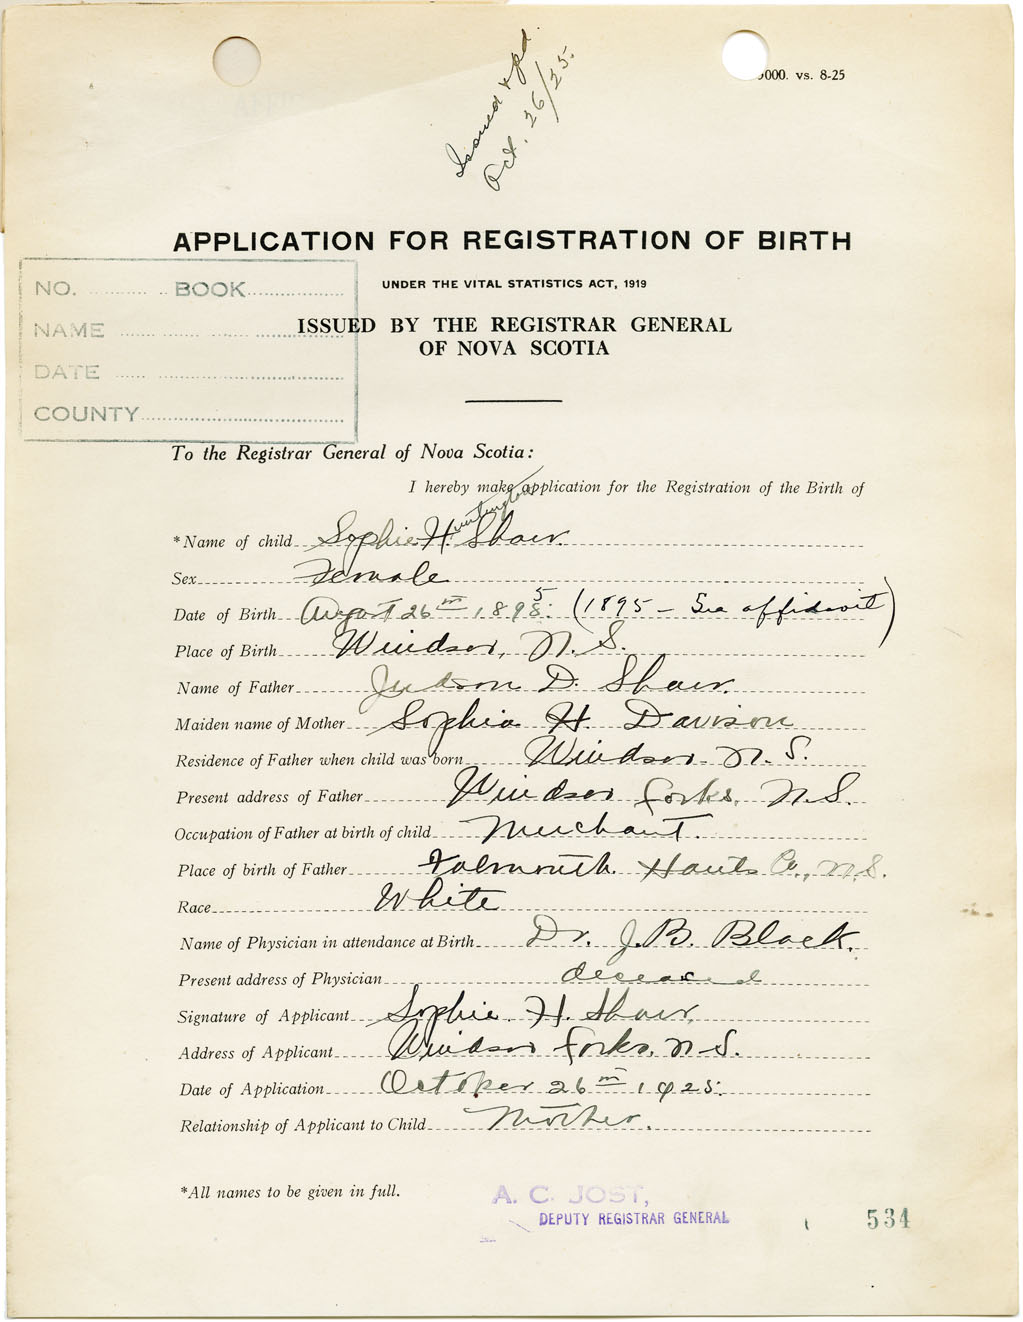 Issued & pd.
Oct. 26/25.
000. vs. 8-25
APPLICATION FOR REGISTRATION OF BIRTH
UNDER THE VITAL STATISTICS ACT, 1919
ISSUED BY THE REGISTRAR GENERAL
OF NOVA SCOTIA
NO. BOOK
NAME
DATE
COUNTY
To the Registrar General of Nova Scotia:
I hereby make application for the Registration of the Birth of
Huntington
*Name of child Sophie H. Shaw.
Sex Female
Date of Birth August 26th 1895. (1895 - See affidavit)
Place of Birth Windsor, N. S.
Name of Father Judson D. Shaw.
Maiden name of Mother Sophia H Davison
Residence of Father when child was born Windsor N. S.
Present address of Father Windsor Forks, N.S.
Occupation of Father at birth of child Merchant.
Place of birth of Father Falmouth. Hants Co., N.S.
Race White
Name of Physician in attendance at Birth Dr. J. B. Black.
Present address of Physician deceased
Signature of Applicant Sophie. H. Shaw.
Address of Applicant Windsor Forks, N.S.
Date of Application October 26th 1925.
Relationship of Applicant to Child Mother.
*All names to be given in full.
A. C. JOST,
DEPUTY REGISTRAR GENERAL
534